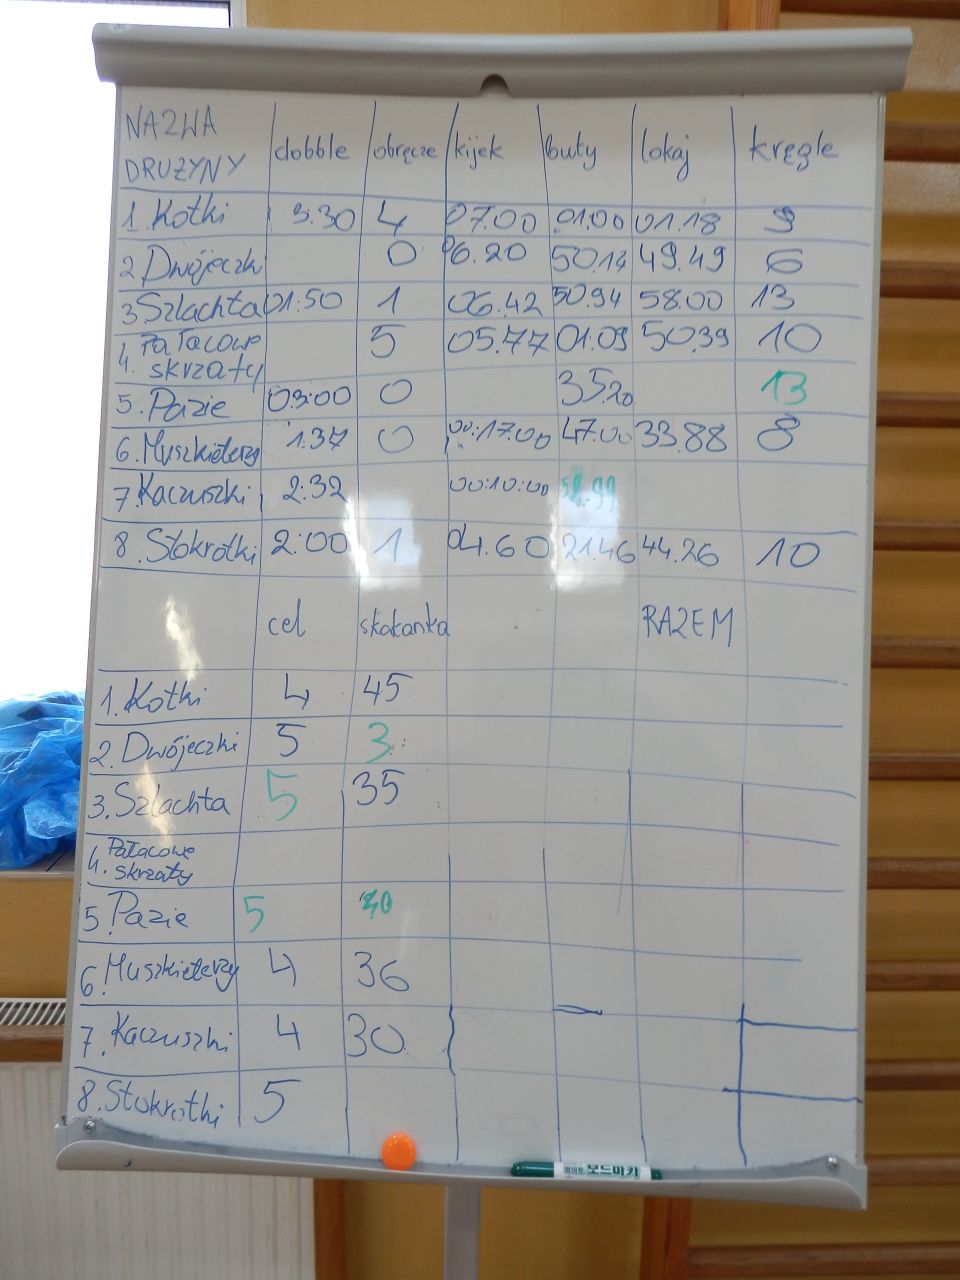 NAZWA DRUŻYNY dobble obręcze kijek buty lokaj kręgle
1. Kotki 3.30 4 07.00 01.00 01.18 9
2. Dwójeczki 0 06.20 50.14 49.49 6
3. Szlachta 01:50 1 06.42 50.94 58.00 13
4. Pałacowe skrzaty 5 05.77 01:09 50.39 10
5. Pazie 03:00 0 35.20 13
6. Muszkieterzy 1:37 0 00:17.00 47.00 33.88 8
7. Kaczuszki 2:32 00:10:00
8. Stokrotki 2:00 1 04.60 21.46 44.26 10
cel skakanka RAZEM
1. Kotki 4 45
2. Dwójeczki 5 3
3. Szlachta 5 35
4. Pałacowe skrzaty
5. Pazie 5
6. Muszkieterzy 4 36
7. Kaczuszki 4 30
8. Stokrotki 5
보드마카